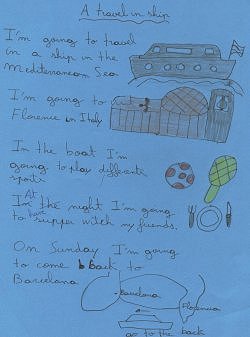 A travel in ship
I'm going to travel
in a ship in the
Mediterranean Sea.
I'm going to
Florence in Italy
In the boat I'm
going to play different
sports
At the night I'm going
to have supper witch my friends.
On Sunday I'm going
to come back to
Barcelona
Barcelona
Florencia
go to the back